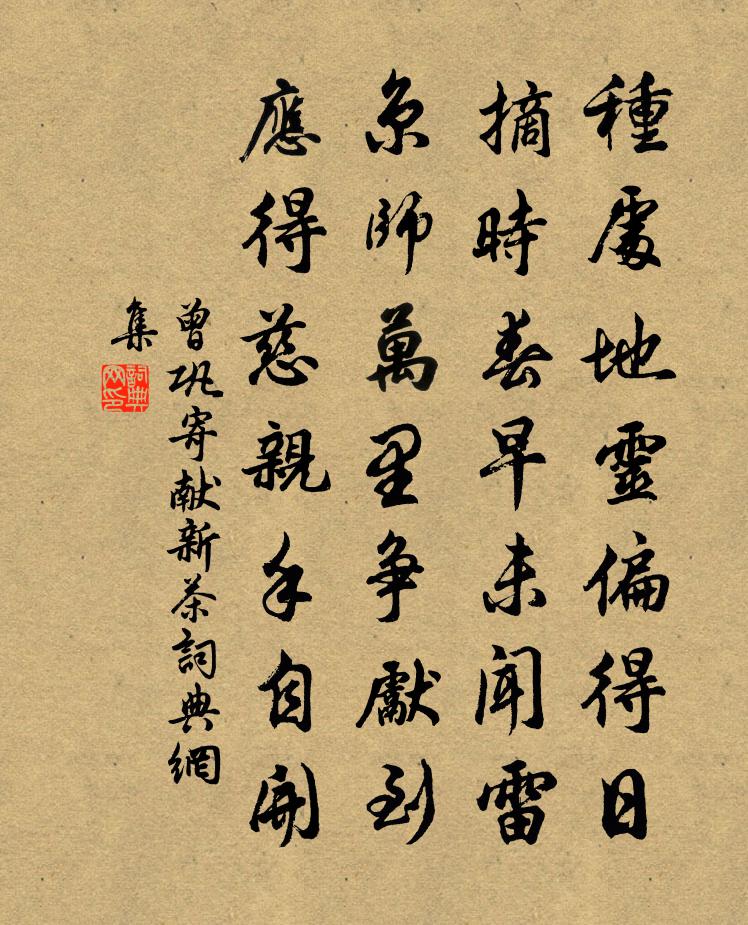 種處地靈偏得日
摘時春早未聞雷
京師萬里争獻到
應得慈親手自開
曾巩寄献新茶詞典網
集
詞典網印